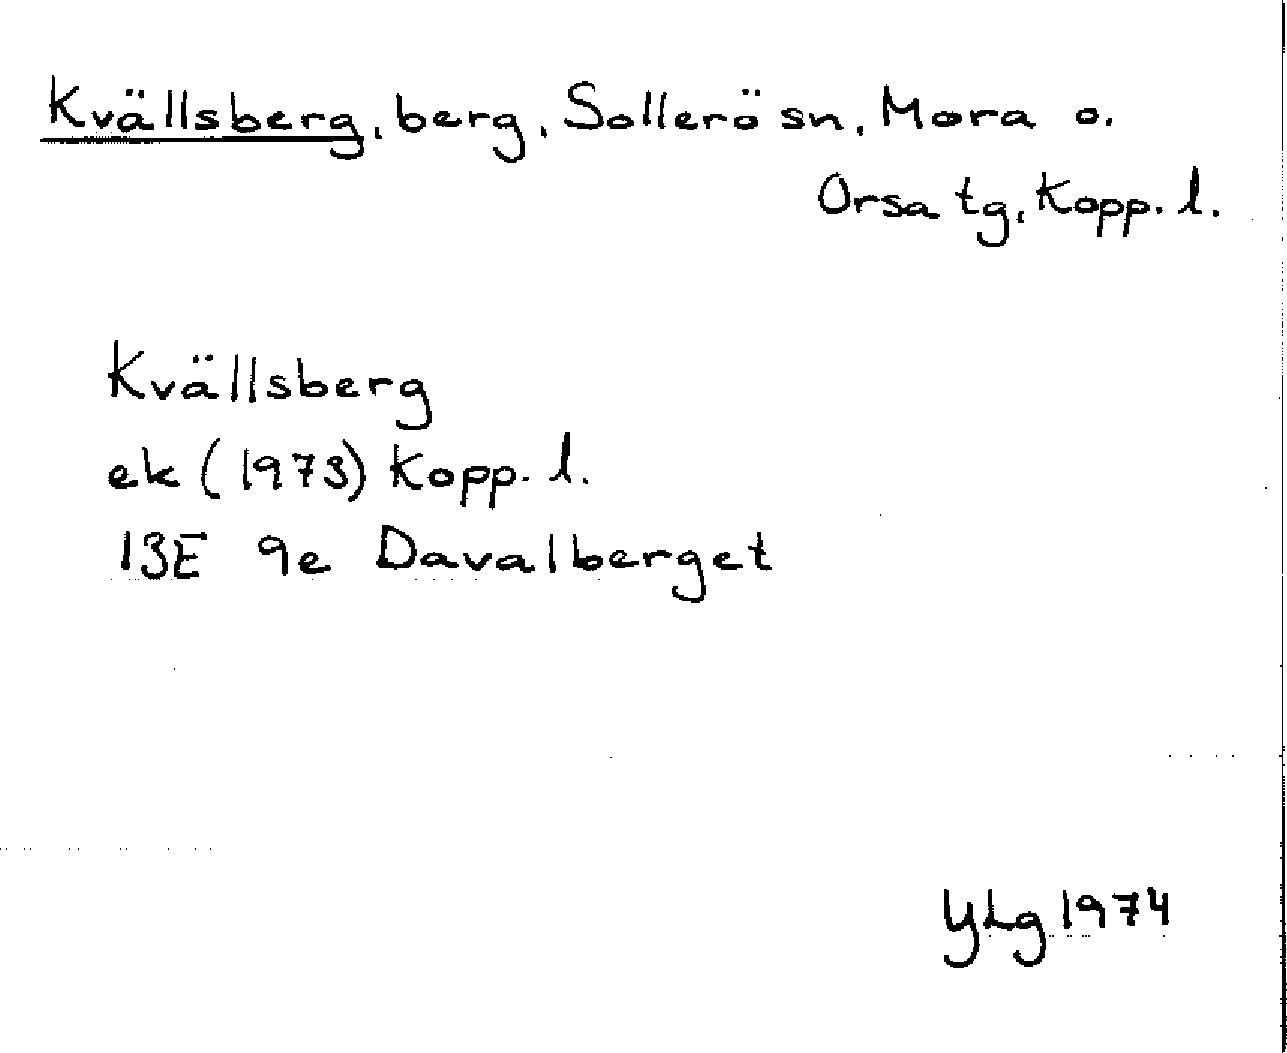 Kvällsberg, berg, Sollerö sn, Mora o.
Orsa tg, Kopp. l.
Kvällsberg
ek (1973) Kopp. l.
13E 9e Davalberget
YLg 1974